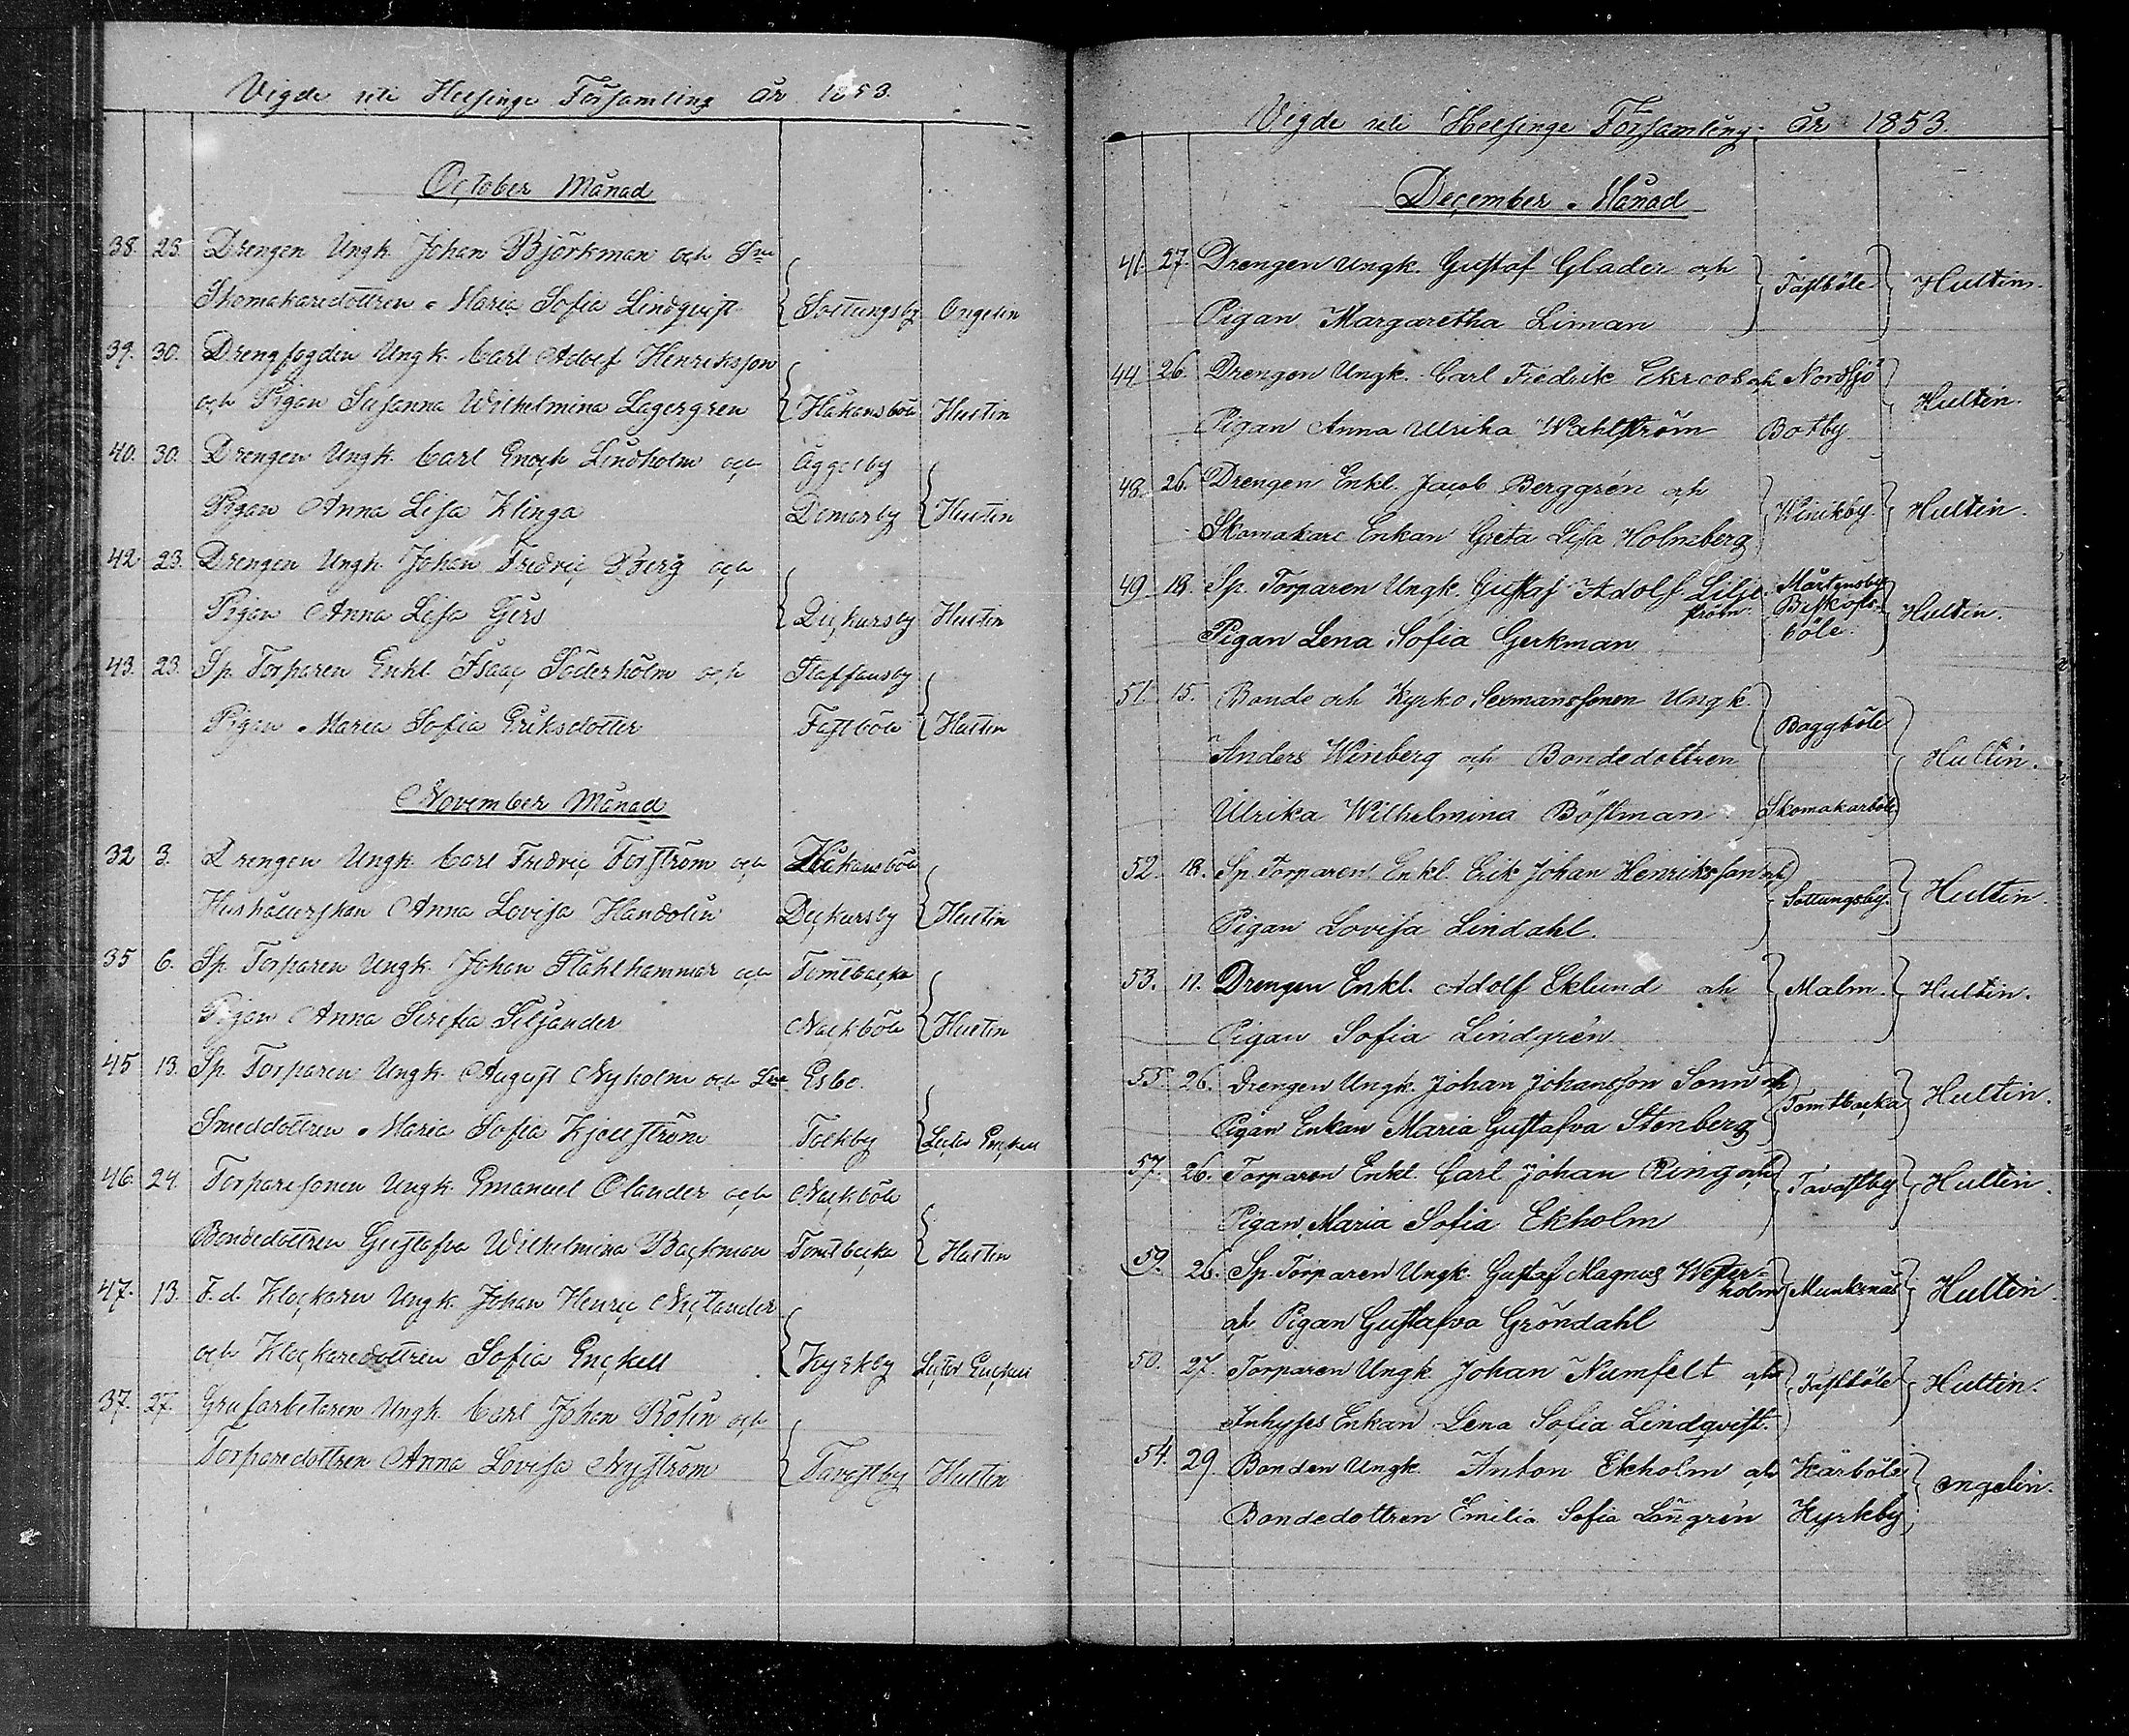 Vigde uti Helsinge Församling år 1853.
October Månad
38. 23. Drengen Ungk. Johan Björkman och Sne
Skomakaredottren Maria Sofia Lindqvist Sottungsby Ongelin
39. 30. Drengfogden Ungk. Carl Adolf Henriksson
och Pigan Susanna Wilhelmina Lagergren Håkansböle Hultin
40. 30. Drengen Ungk. Carl Enock Lindholm och Åggelby
Pigan Anna Lisa Klinga Domarby Hultin
42. 23. Drengen Ungk. Johan Fredric Berg och
Pigan Anna Lisa Gers Dickursby Hultin
43. 23. Sp. Torparen Enkl. Isaac Söderholm och Staffansby
Pigan Maria Sofia Eriksdotter Fastböle Hultin
November Månad
32 3. Drengen Ungk. Carl Fredric Forström och Håkansböle
Hushållerskan Anna Lovisa Handolin Dickursby Hultin
35 6. Sp. Torparen Ungk. Johan Stahlhammar och Tomtbacka
Pigan Anna Serafia Siljander Nackböle Hultin
45 13. Sp. Torparen Ungk. August Nyholm och Esbo.
Smeddottren Maria Sofia Kjellström Tolkby Lector Enckell
46. 24. Torparesonen Ungk. Emanuel Olander och Nackböle
Bondedottren Gustafva Wilhelmina Backman Tomtbacka Hultin
47. 13. F.d. Klockaren Ungk. Johan Henric Nylander
och Klockaredottren Sofia Enckell Kyrkby Lector Enckell
37. 27. Grufarbetaren Ungk. Carl Johan Rolin och
Torparedottren Anna Lovisa Nyström Tavastby Hultin
Vigde uti Helsinge Församling år 1853.
December Månad
41. 27. Drengen Ungk. Gustaf Glader och Fastböle Hultin.
Pigan Margaretha Liman
44 26. Drengen Ungk. Carl Fredrik Ekroos och Nordsjö
Pigan Anna Ulrika Wahlström Botby Hultin.
48. 26. Drengen Enkl. Jacob Berggrén och
Skomakare Enkan Greta Lisa Holmberg Winikby Hultin.
49 18. Sp. Torparen Ungk. Gustaf Adolf Lilje- Mårtensby
ström Biskops-
Pigan Lena Sofia Gerkman böle. Hultin.
51. 15. Bonde och Kyrko Sexmanssonen Ungk
Anders Winberg och Bondedottren Baggböle Hultin.
Ulrika Wilhelmina Böstman Skomakarböle
52. 18. Sp. Torparen Enkl. Erik Johan Henriksson och
Pigan Lovisa Lindahl. Sottungsby. Hultin.
53. 11. Drengen Enkl. Adolf Eklund och Malm. Hultin.
Pigan Sofia Lindgrén
55. 26. Drengen Ungk. Johan Johansson Sonn och
Pigan Enkan Maria Gustafva Stenberg Tomtbacka Hultin.
57. 26. Torparen Enkl. Carl Johan Ring och Tavastby Hultin.
Pigan Maria Sofia Ekholm
59. 26. Sp. Torparen Ungk. Gustaf Magnus Wester-
holm Munksnäs Hultin
och Pigan Gustafva Gröndahl
50. 27. Torparen Ungk. Johan Numfelt och Fastböle Hultin.
Inhyses Enkan Lena Sofia Lindqvist.
54. 29. Bonden Ungk. Anton Ekholm och Kårböle
Bondedottren Emilia Sofia Löngrén Kyrkby Ongelin.